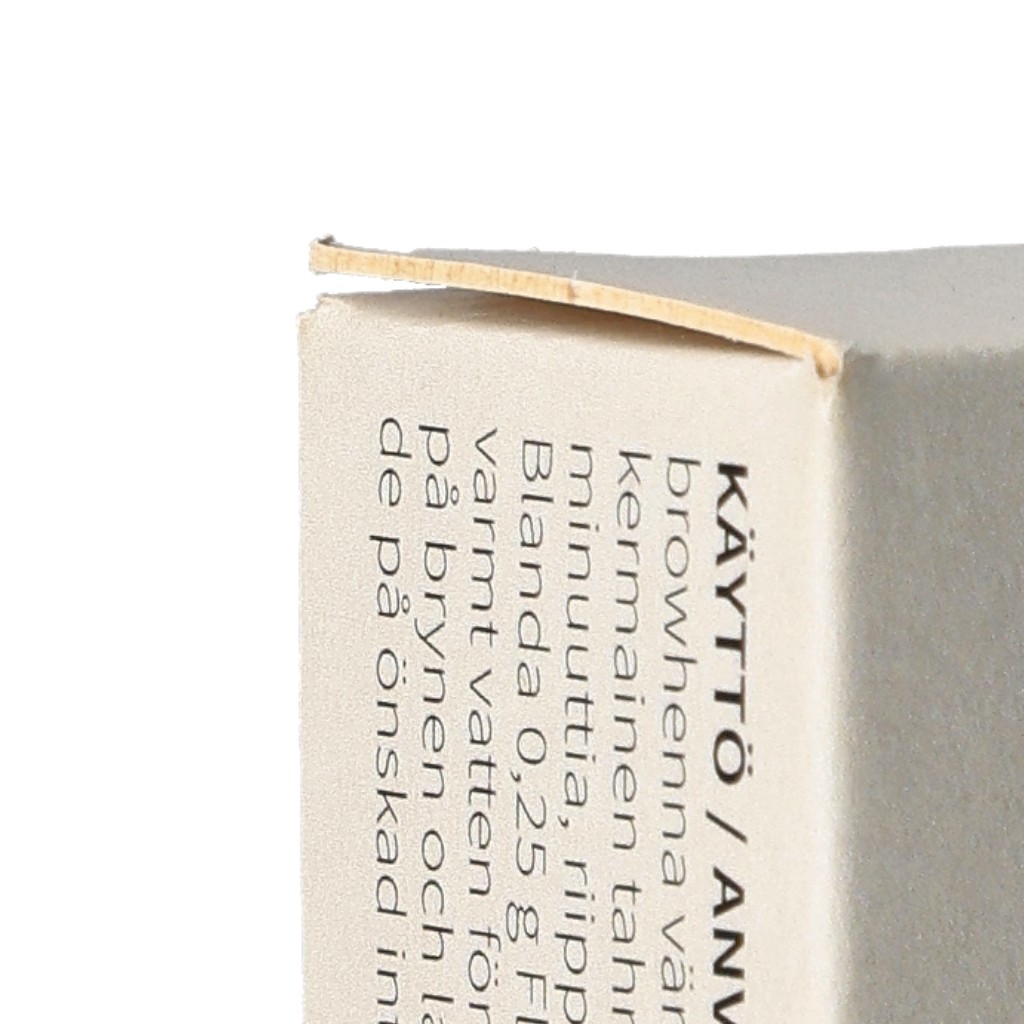 KÄYTTÖ / ANV
browhenna vär
kermainen tahn
minuuttia, riipp
Blanda 0,25 g Fl
varmt vatten för
på brynen och lä
de på önskad int